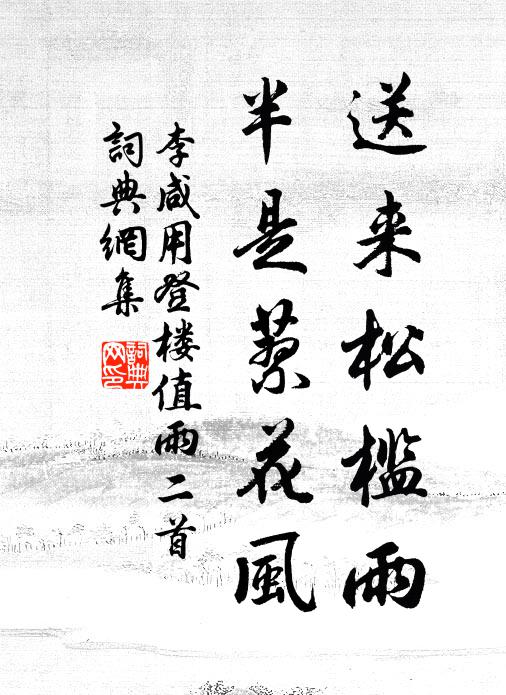 送来松檻雨
半是蓼花風
李咸用登楼值雨二首
詞典網集
詞典
网印